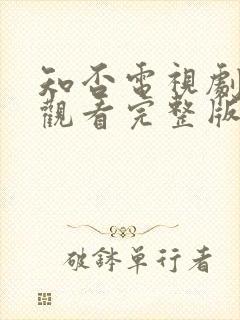 知否電視劇
觀看完整版
破鉢單行者